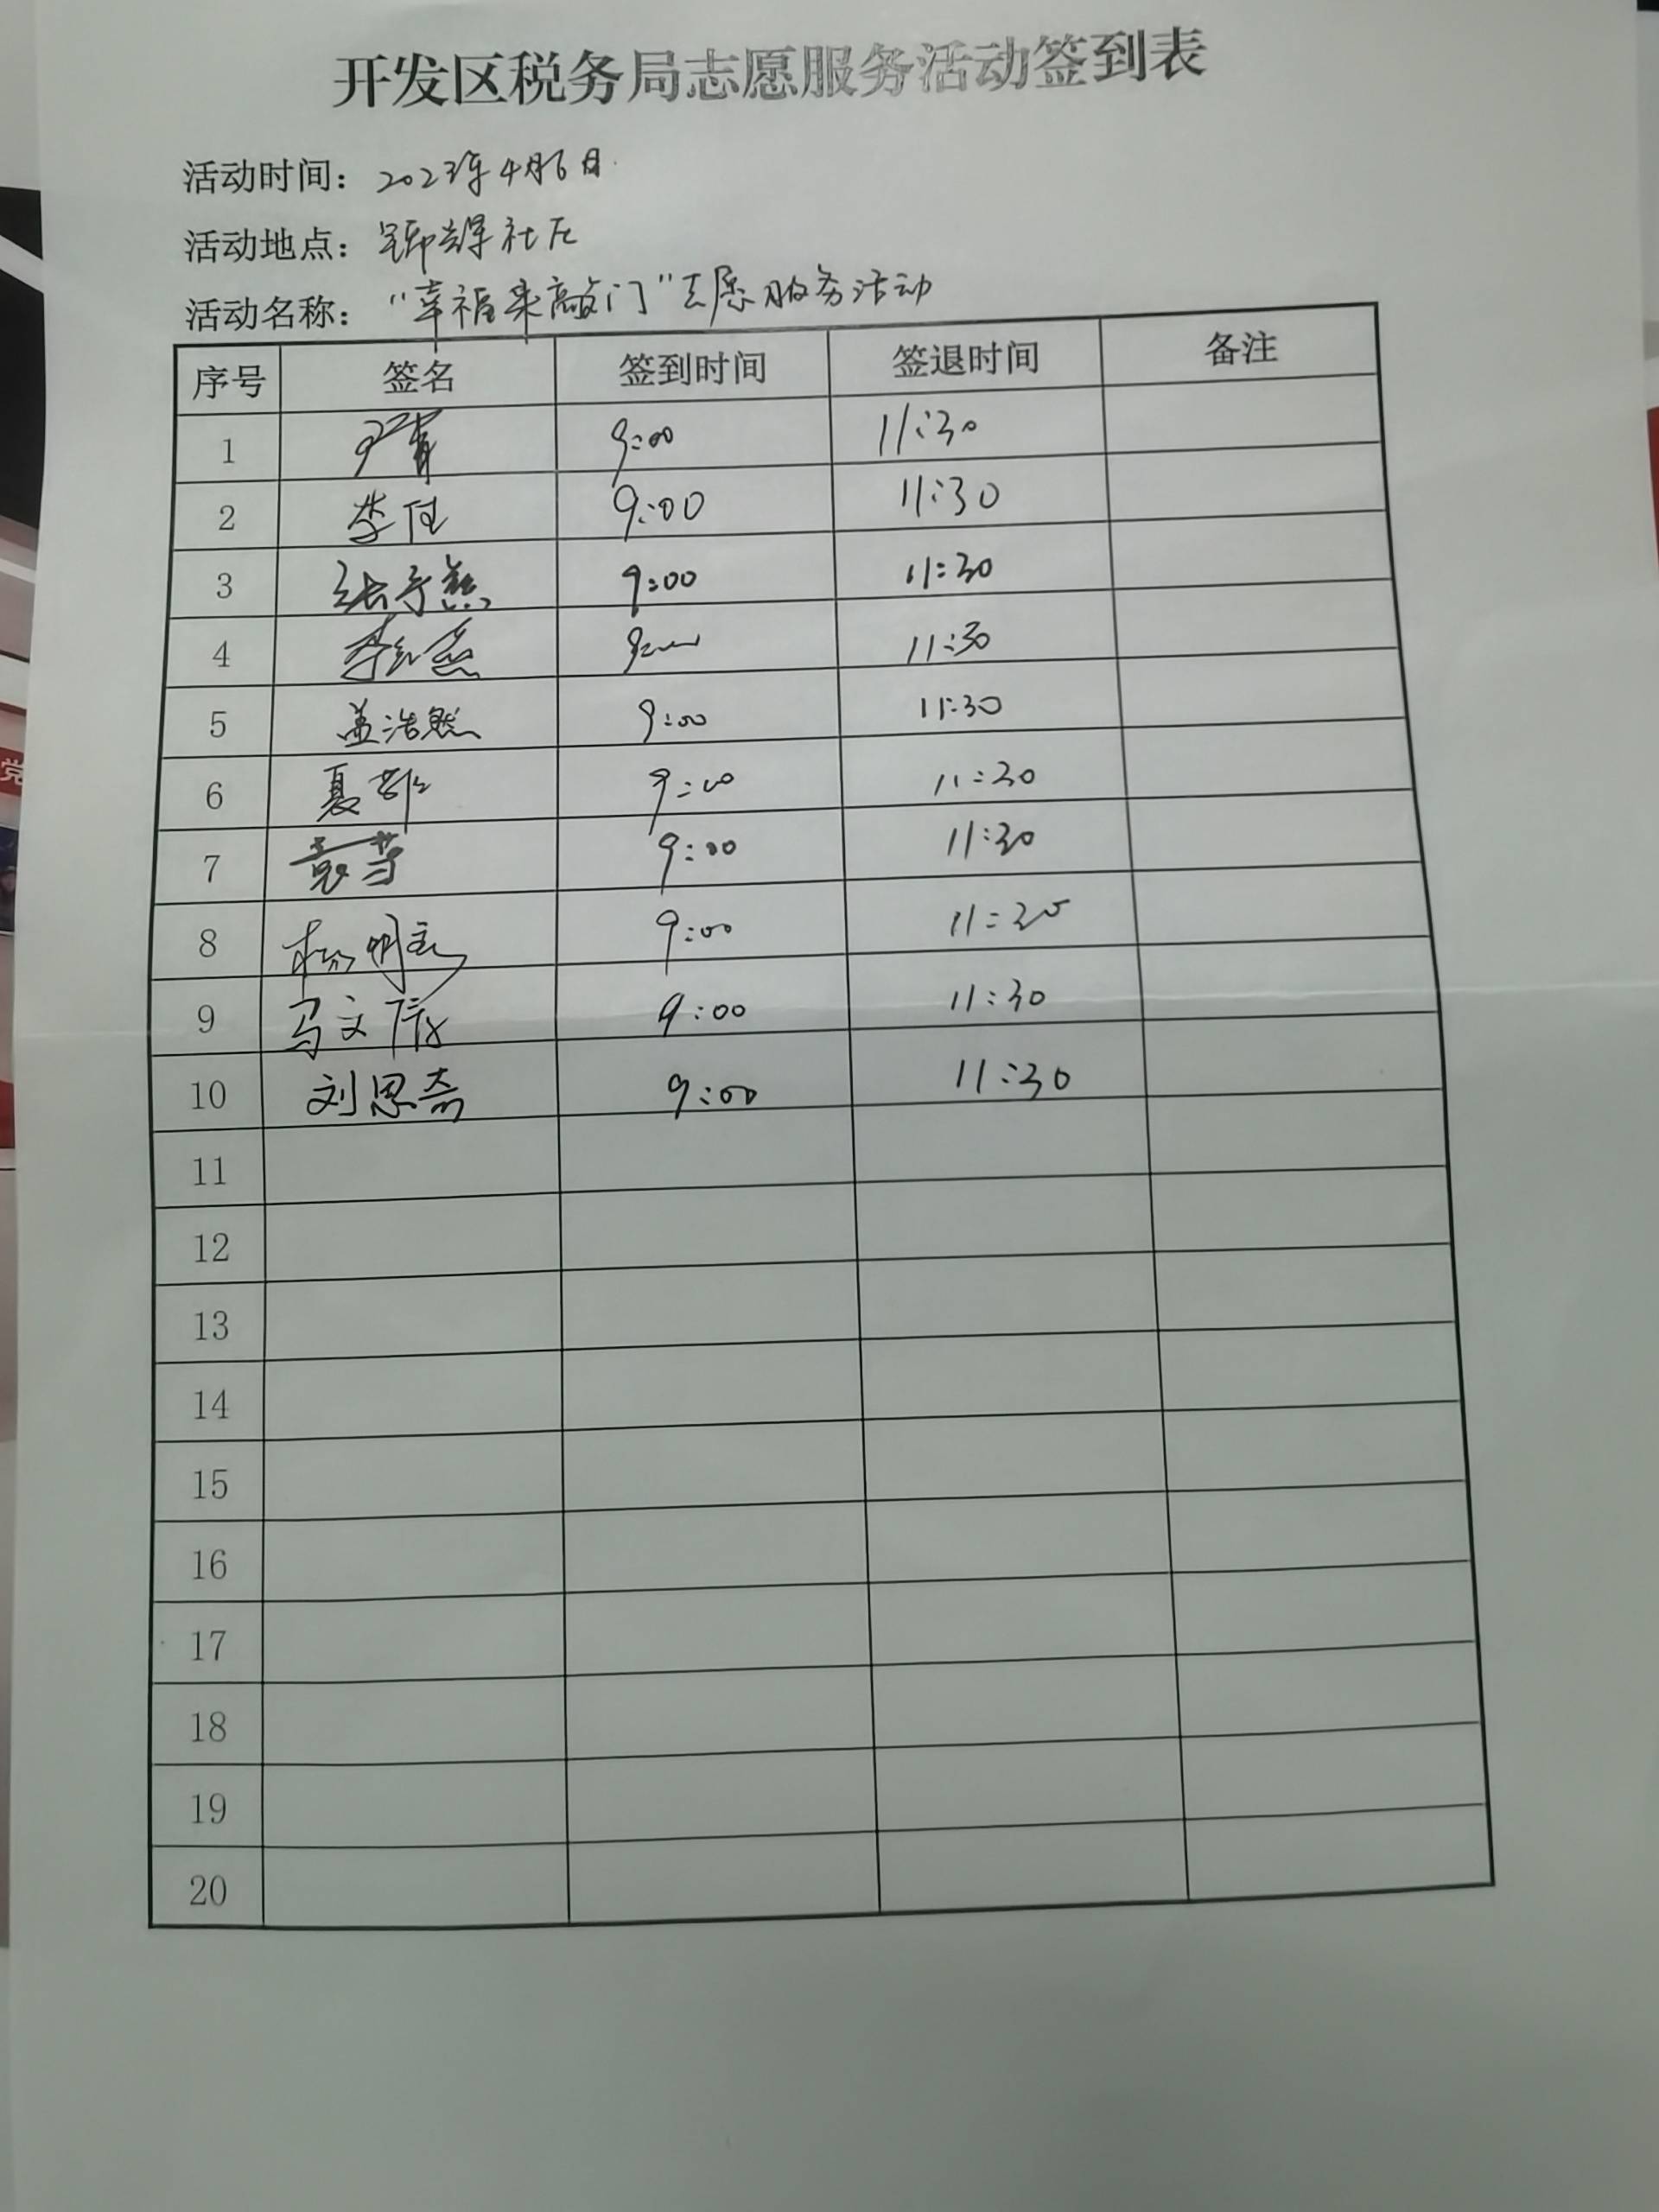 开发区税务局志愿服务活动签到表
活动时间：2023年4月6日
活动地点：锦辉社区
活动名称："幸福来敲门"志愿服务活动
序号 签名 签到时间 签退时间 备注
1 9:00 11:30
2 李 9:00 11:30
3 张子燕 9:00 11:30
4 李红燕 9:00 11:30
5 盖浩然 9:00 11:30
6 夏 9:00 11:30
7 袁芳 9:00 11:30
8 杨明 9:00 11:30
9 马文 9:00 11:30
10 刘思斋 9:00 11:30
11
12
13
14
15
16
17
18
19
20
党